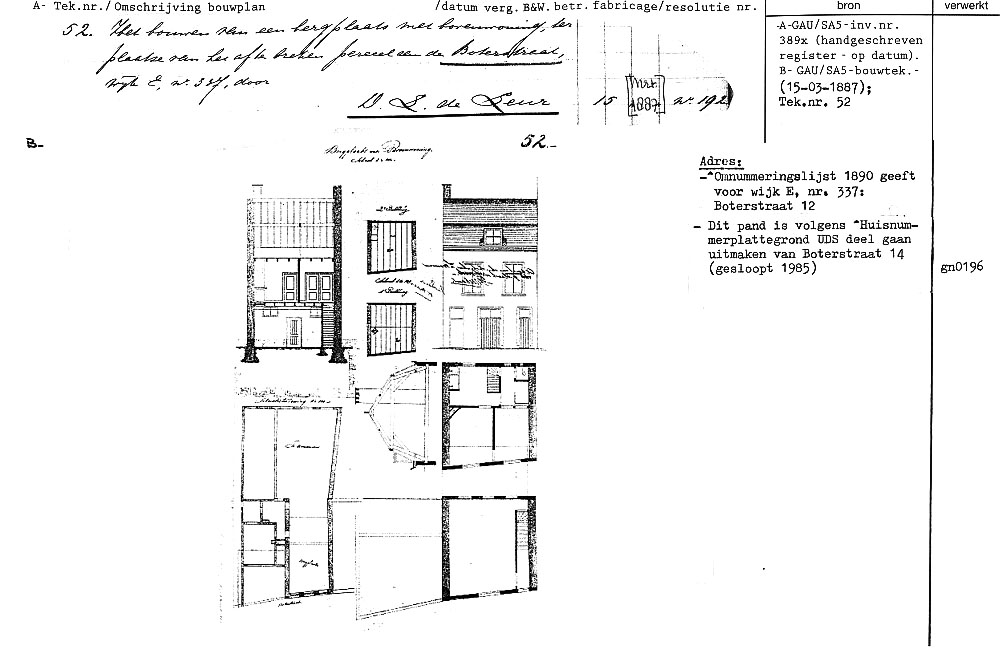 A- Tek.nr./Omschrijving bouwplan /datum verg. B&W. betr. fabricage/resolutie nr. bron verwerkt
52. Het bouwen van een bergplaats met bovenwoning, ter
plaatse van het af te breken perceel aan de Boterstraat,
wijk E, nº 337, door
D L. de Leur 15 Mrt. 1887 nº 192
A-GAU/SA5-inv.nr.
389x (handgeschreven
register - op datum).
B- GAU/SA5-bouwtek.-
(15-03-1887);
Tek.nr. 52
B- 52.-
Bergplaats en Bovenwoning.
Adres:
-^Omnummeringslijst 1890 geeft
voor wijk E, nr. 337:
Boterstraat 12
- Dit pand is volgens ^Huisnum-
merplattegrond UDS deel gaan
uitmaken van Boterstraat 14
(gesloopt 1985)
gn0196